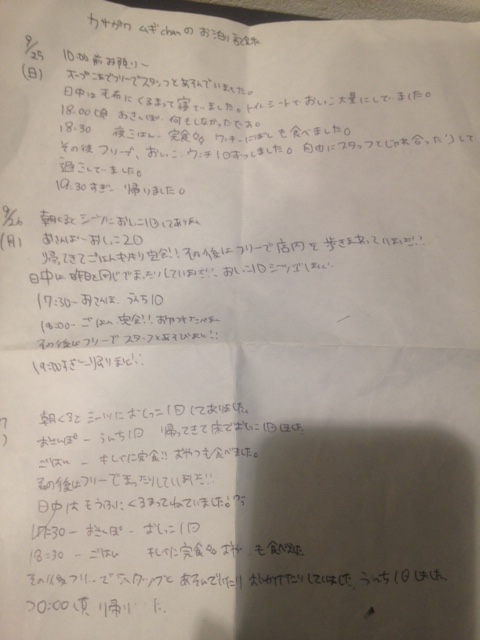 カサガワ ムギchanのお泊り記録
9/25 10:00前お預り〜
(日) オープンまでフリーでスタッフとあそんでいました。
日中は毛布にくるまって寝ていました。トイレシートでおしっこ大量にしていました。
18:00頃 おさんぽ 何もしなかったでス。
18:30 夜ごはん 完食 クッキーにぼしも食べました。
その後フリーで、おしっこ、ウンチ1回ずつしました。自由にスタッフとじゃれ合ったりして
過ごしていました。
19:30すぎ 帰りました。
9/26 朝くるとシーツにおしっこ1回してありました
(月) おさんぽーおしっこ2回
帰ってきてごはん 完食!! その後はフリーで店内を歩きまわっていました!!
日中は昨日と同じでまったりしていました!! おしっこ1回シーツでしました
17:30〜おさんぽ うんち1回
18:00〜ごはん 完食!!
その後はフリーでスタッフとあそびました!!
19:00すぎ〜帰りました!!
朝くるとシーツにおしっこ1回してありました。
おさんぽ ー うんち1回 帰ってきて床でおしっこ1回しました
ごはん ー キレイに完食!! おやつも食べました。
その後はフリーでまったりしていました!!
日中はもうふにくるまってねていました!!
17:30 ー おさんぽ ー おしっこ1回
18:30 ー ごはん キレイに完食 おやつも食べました
その後フリーでスタッフとあそんでいたり おいかけたりしていました うんち1回しました
20:00頃 帰りました